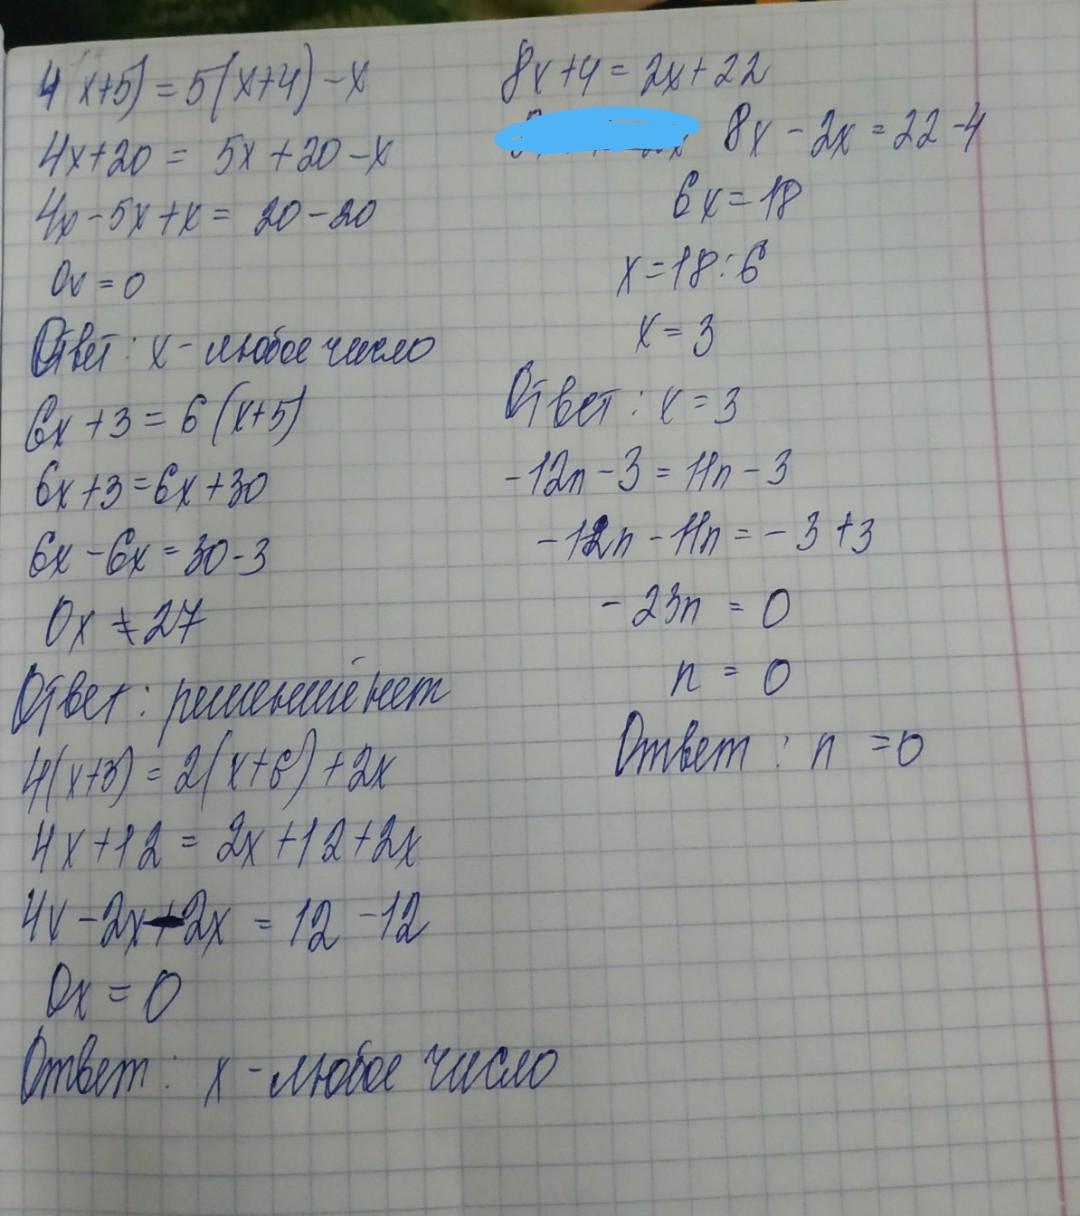 4(x+5) = 5(x+4) - x
4x+20 = 5x+20-x
4x-5x+x = 20-20
0x = 0
Ответ: x - любое число
6x+3 = 6(x+5)
6x+3 = 6x+30
6x-6x = 30-3
0x ≠ 27
Ответ: решений нет
4(x+3) = 2(x+6)+2x
4x+12 = 2x+12+2x
4x-2x-2x = 12-12
0x = 0
Ответ: x - любое число
8x+4 = 2x+22
8x-2x = 22-4
6x = 18
x = 18:6
x = 3
Ответ: x = 3
-12n-3 = 11n-3
-12n-11n = -3+3
-23n = 0
n = 0
Ответ: n = 0